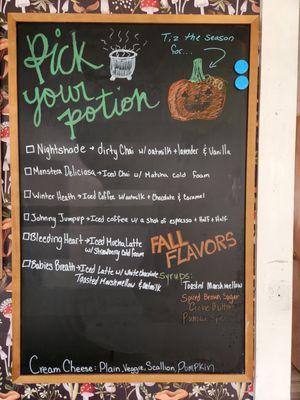 Pick
your
potion
Tiz the Season
for...
Nightshade → dirty Chai w/oatmilk + lavender & Vanilla
Monstera Deliciosa → Iced Chai w/ Matcha cold foam
Winter Heath → Iced Coffee w/oatmilk + Chocolate & Caramel
Johnny Jumpup → Iced coffee w/ a shot of espresso + Half & Half
Bleeding Heart → Iced Mocha Latte
w/ Strawberry Cold Foam
Babies Breath → Iced Latte w/ White chocolate
Toasted Marshmellow & Oatmilk
FALL
FLAVORS
Syrups:
Toasted Marshmellow
Spiced Brown Sugar
Pumpkin Spice
Cream Cheese: Plain, Veggie, Scallion, Pumpkin